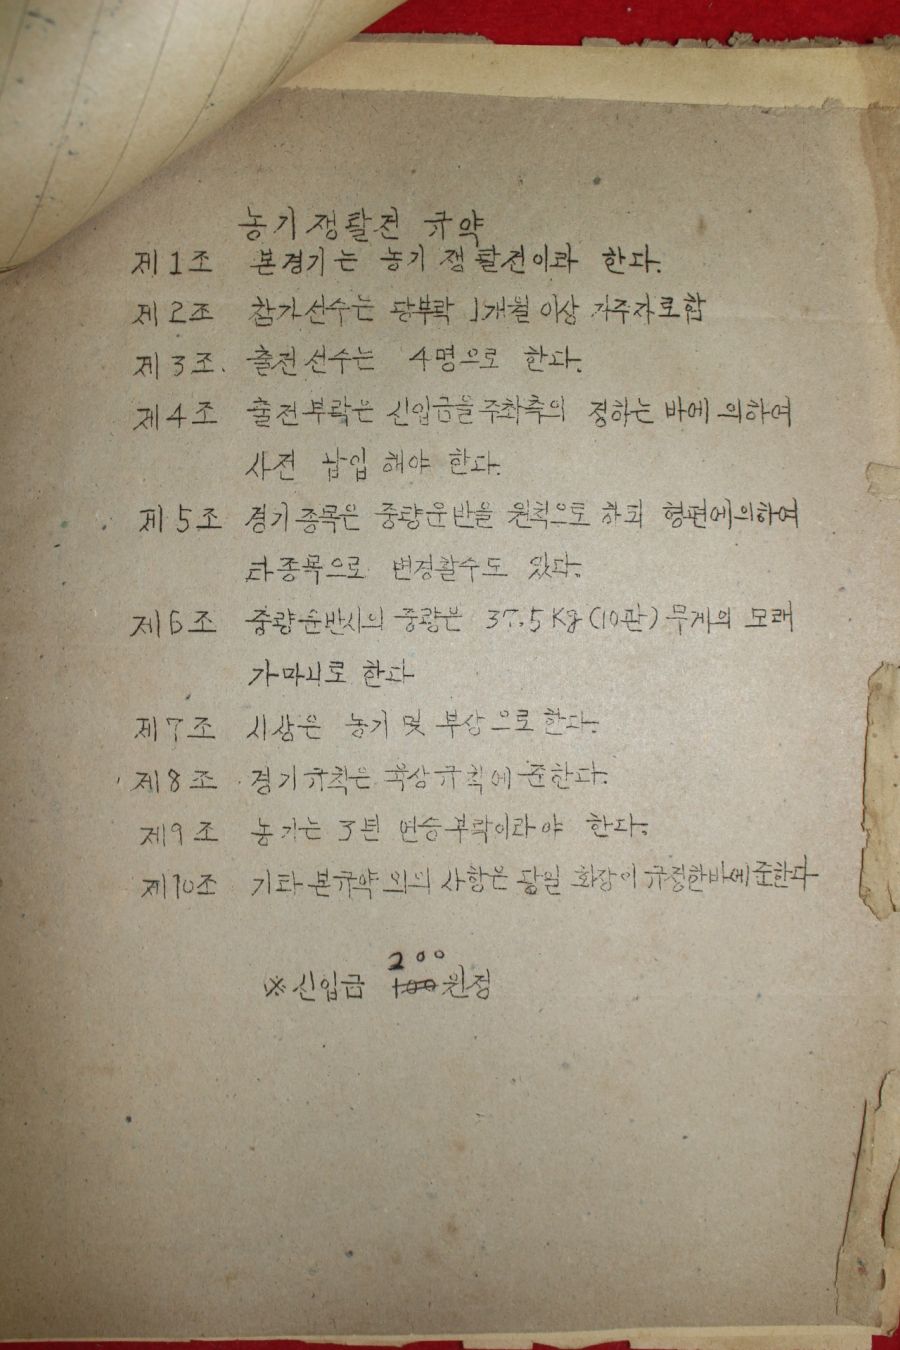 농기쟁탈전 규약
제1조 본경기는 농기쟁탈전이라 한다.
제2조 참가선수는 당부락 1개월 이상 거주자로함
제3조. 출전선수는 4명으로 한다.
제4조 출전부락은 신입금을 주최측의 정하는 바에 의하여
사전 납입 해야 한다.
제5조 경기종목은 중량운반을 원칙으로 하되 형편에의하여
타종목으로 변경할수도 있다.
제6조 중량운반시의 중량은 37.5Kg(10관)무게의 모래
가마니로 한다
제7조 시상은 농기 및 부상으로 한다.
제8조 경기규칙은 육상규칙에 준한다.
제9조 농기는 3년 연승부락이라야 한다.
제10조 기타 본규약 외의 사항은 당일 회장이 규정한바에준한다
200
※신입금 100원정